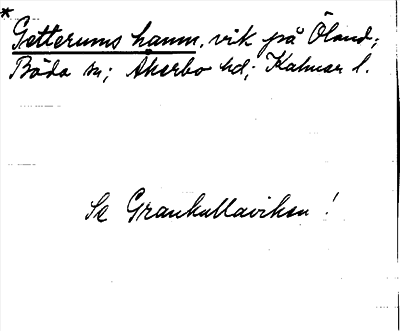 *
Getterums hamn, vik på Öland;
Böda sn; Åkerbo hd; Kalmar l.
Se Grankullaviken!